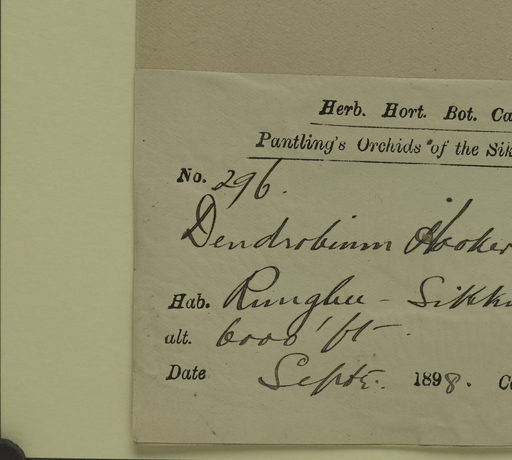 Herb. Hort. Bot. Ca
Pantling's Orchids of the Sik
No. 296.
Dendrobium Hooker
Hab. Rungbee - Sikki
alt. 6000' ft.
Date Septr. 1898. Co